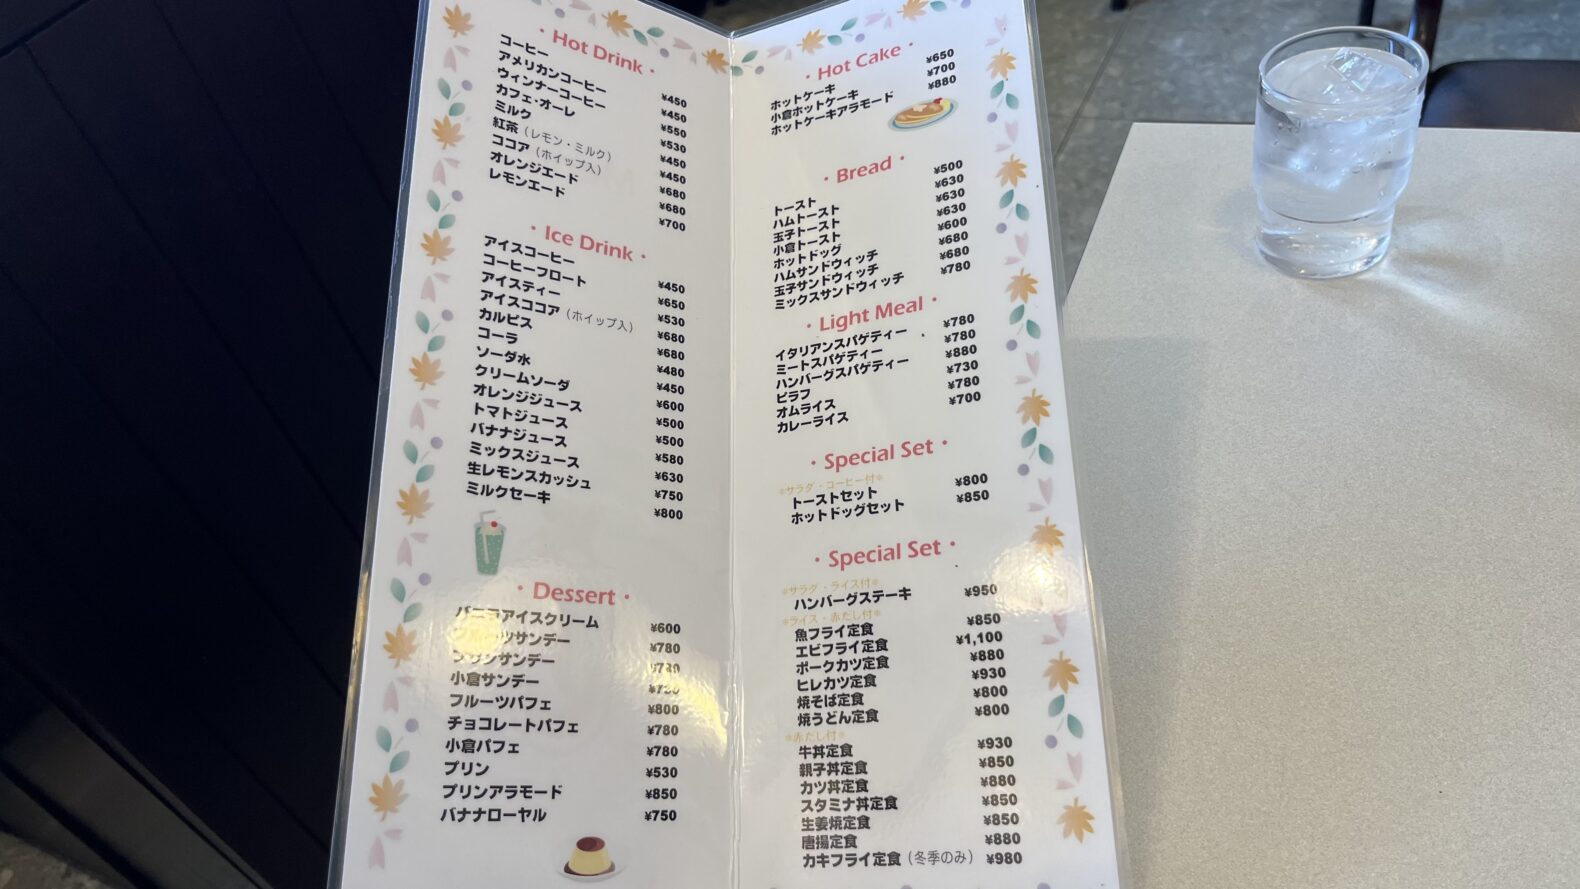 ・Hot Drink・
コーヒー ¥450
アメリカンコーヒー ¥450
ウィンナーコーヒー ¥550
カフェ・オーレ ¥530
ミルク ¥450
紅茶（レモン・ミルク） ¥450
ココア（ホイップ入） ¥680
オレンジエード ¥680
レモンエード ¥700
・Ice Drink・
アイスコーヒー ¥450
コーヒーフロート ¥650
アイスティー ¥530
アイスココア（ホイップ入） ¥680
カルピス ¥680
コーラ ¥480
ソーダ水 ¥450
クリームソーダ ¥600
オレンジジュース ¥500
トマトジュース ¥500
バナナジュース ¥580
ミックスジュース ¥630
生レモンスカッシュ ¥750
ミルクセーキ ¥800
・Dessert・
バニラアイスクリーム ¥600
フルーツサンデー ¥780
サンデー
小倉サンデー
フルーツパフェ ¥800
チョコレートパフェ ¥780
小倉パフェ ¥780
プリン ¥530
プリンアラモード ¥850
バナナローヤル ¥750
・Hot Cake・
ホットケーキ ¥650
小倉ホットケーキ ¥700
ホットケーキアラモード ¥880
・Bread・
トースト ¥500
ハムトースト ¥630
玉子トースト ¥630
小倉トースト ¥630
ホットドッグ ¥600
ハムサンドウィッチ ¥680
玉子サンドウィッチ ¥680
ミックスサンドウィッチ ¥780
・Light Meal・
イタリアンスパゲティー ¥780
ミートスパゲティー ¥780
ハンバーグスパゲティー ¥880
ピラフ ¥730
オムライス ¥780
カレーライス ¥700
・Special Set・
※サラダ・コーヒー付※
トーストセット ¥800
ホットドッグセット ¥850
・Special Set・
※サラダ・ライス付※
ハンバーグステーキ ¥950
※ライス・赤だし付※
魚フライ定食 ¥850
エビフライ定食 ¥1,100
ポークカツ定食 ¥880
ヒレカツ定食 ¥930
焼そば定食 ¥800
焼うどん定食 ¥800
※赤だし付※
牛丼定食 ¥930
親子丼定食 ¥850
カツ丼定食 ¥880
スタミナ丼定食 ¥850
生姜焼定食 ¥850
唐揚定食 ¥880
カキフライ定食（冬季のみ） ¥980